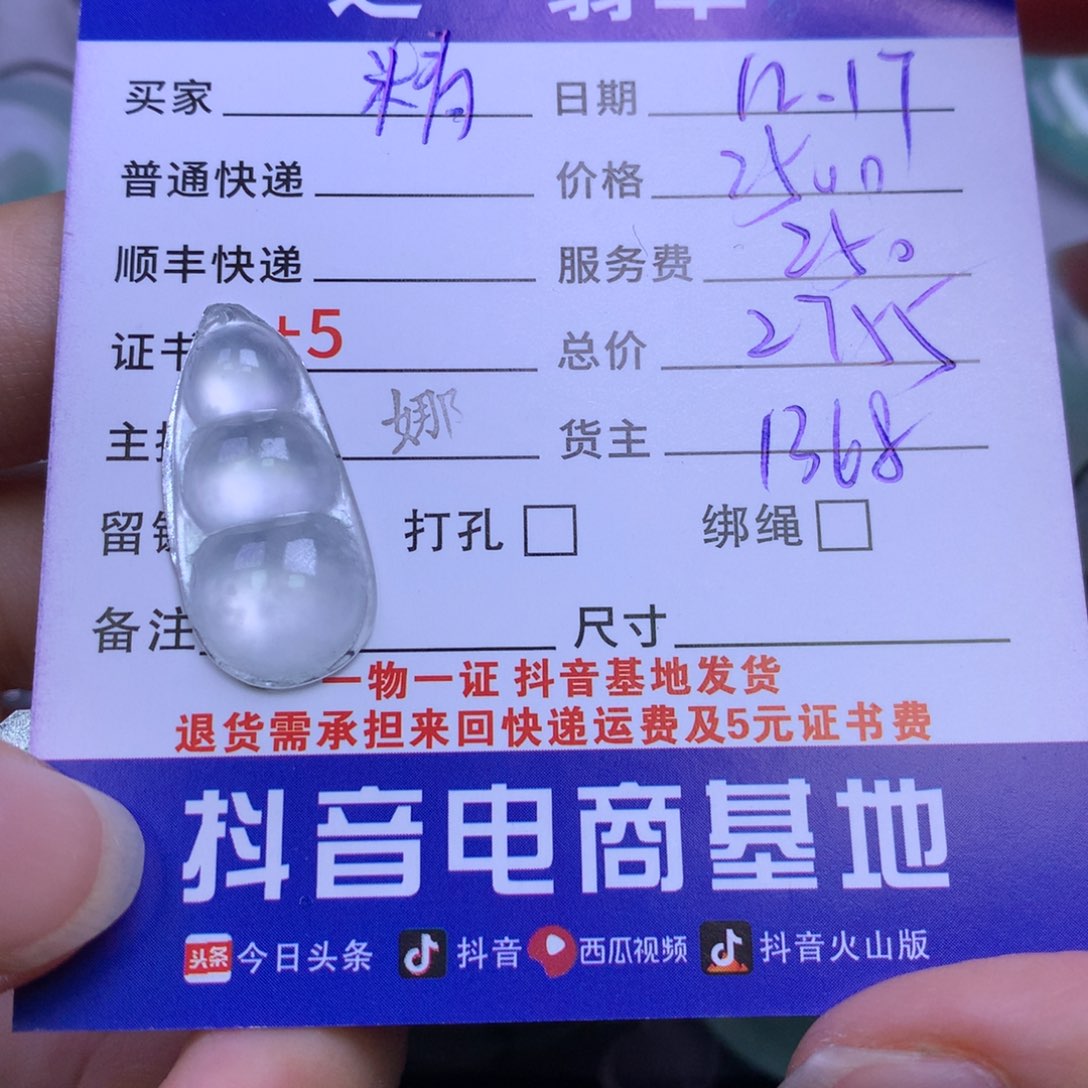 买家 精 日期 12.17
普通快递 价格 2500
顺丰快递 服务费 250
证书 +5 总价 2755
主 娜 货主 1368
留 打孔 绑绳
备注 尺寸
一物一证 抖音基地发货
退货需承担来回快递运费及5元证书费
抖音电商基地
头条 今日头条 抖音 西瓜视频 抖音火山版